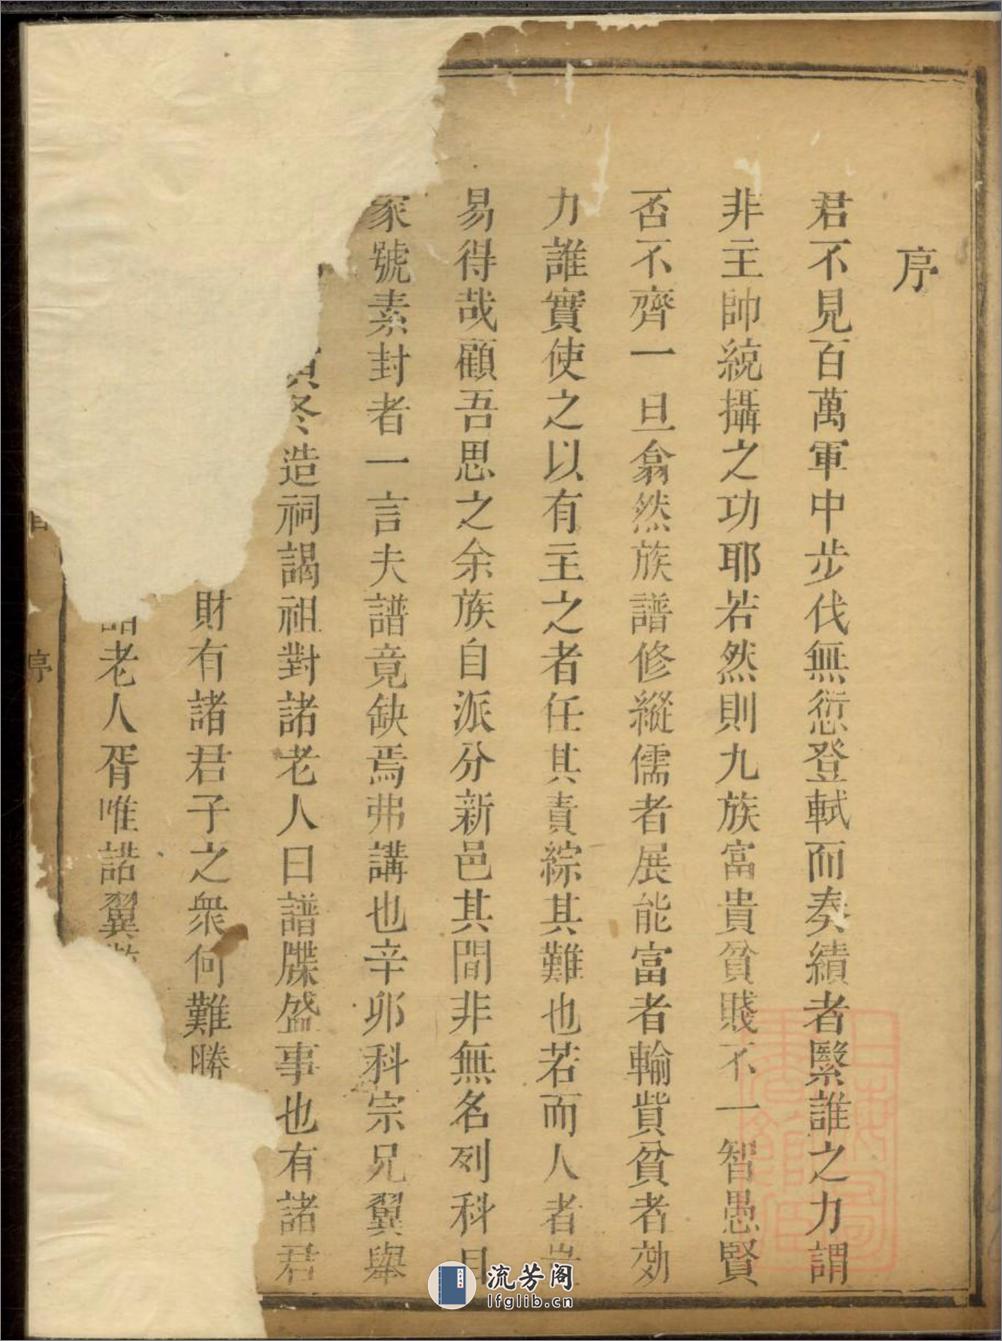 序
君不見百萬軍中步伐無愆登軾而奏績者繄誰之力謂
非主帥統攝之功耶若然則九族富貴貧賤不一智愚賢
否不齊一旦翕然族譜修縱儒者展能富者輸貲貧者效
力誰實使之以有主之者任其責綜其難也若而人者豈
易得哉顧吾思之余族自派分新邑其間非無名列科目
家號素封者一言夫譜竟缺焉弗講也辛卯科宗兄翼舉
冬造祠謁祖對諸老人曰譜牒盛事也有諸君
財有諸君子之衆何難勝
老人胥唯諾翼
序
流芳阁
lfglib.cn